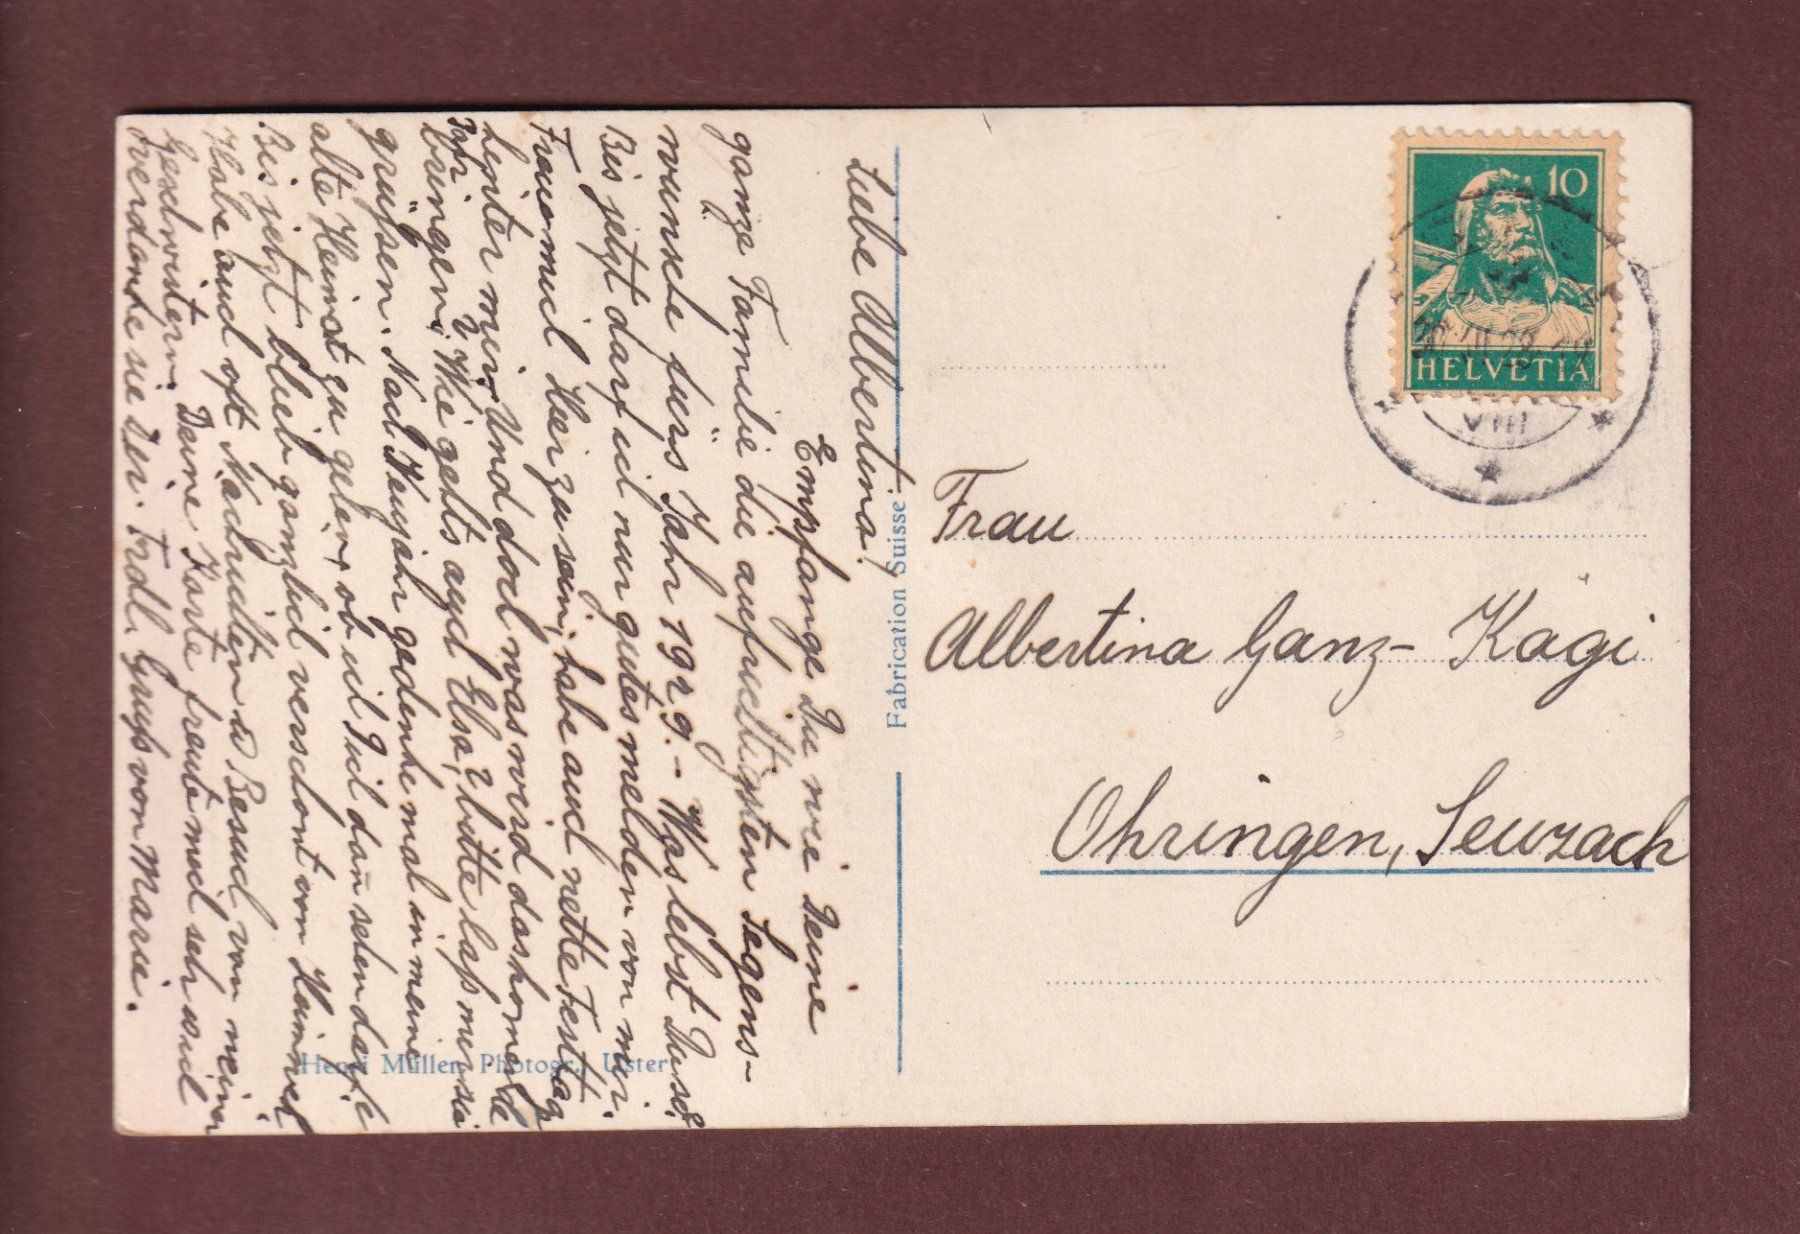 Liebe Albertina!
Empfange Du wie Deine
ganze Familie die aufrichtigsten Segens-
wünsche fürs Jahr 1929. - Was lebst Du so?
Bis jetzt darf ich nur gutes melden von mir.
Freue mich Hier zu sein, habe auch nette Festtage
hinter mir. Und doch was wird das komende
Jahr
bringen? Wie gehts auch Elsa? bitte lass mir sie
grüssen. Nach Neujahr gedenke mal in meine
alte Heimat zu gehen, ob ich Dich dan̄ sehen darf?
Bis jetzt blieb gänzlich verschont vom Heimweh
Habe auch oft Nachrichten u Besuch von meinen
Geschwistern. Deine Karte freute mich sehr und
verdanke sie Dir. Frdl. Gruss von Marie.
Fabrication Suisse
Henri Müller, Photogr., Uster
10
HELVETIA
VIII
Frau
Albertina Ganz-Kägi
Ohringen, Seuzach